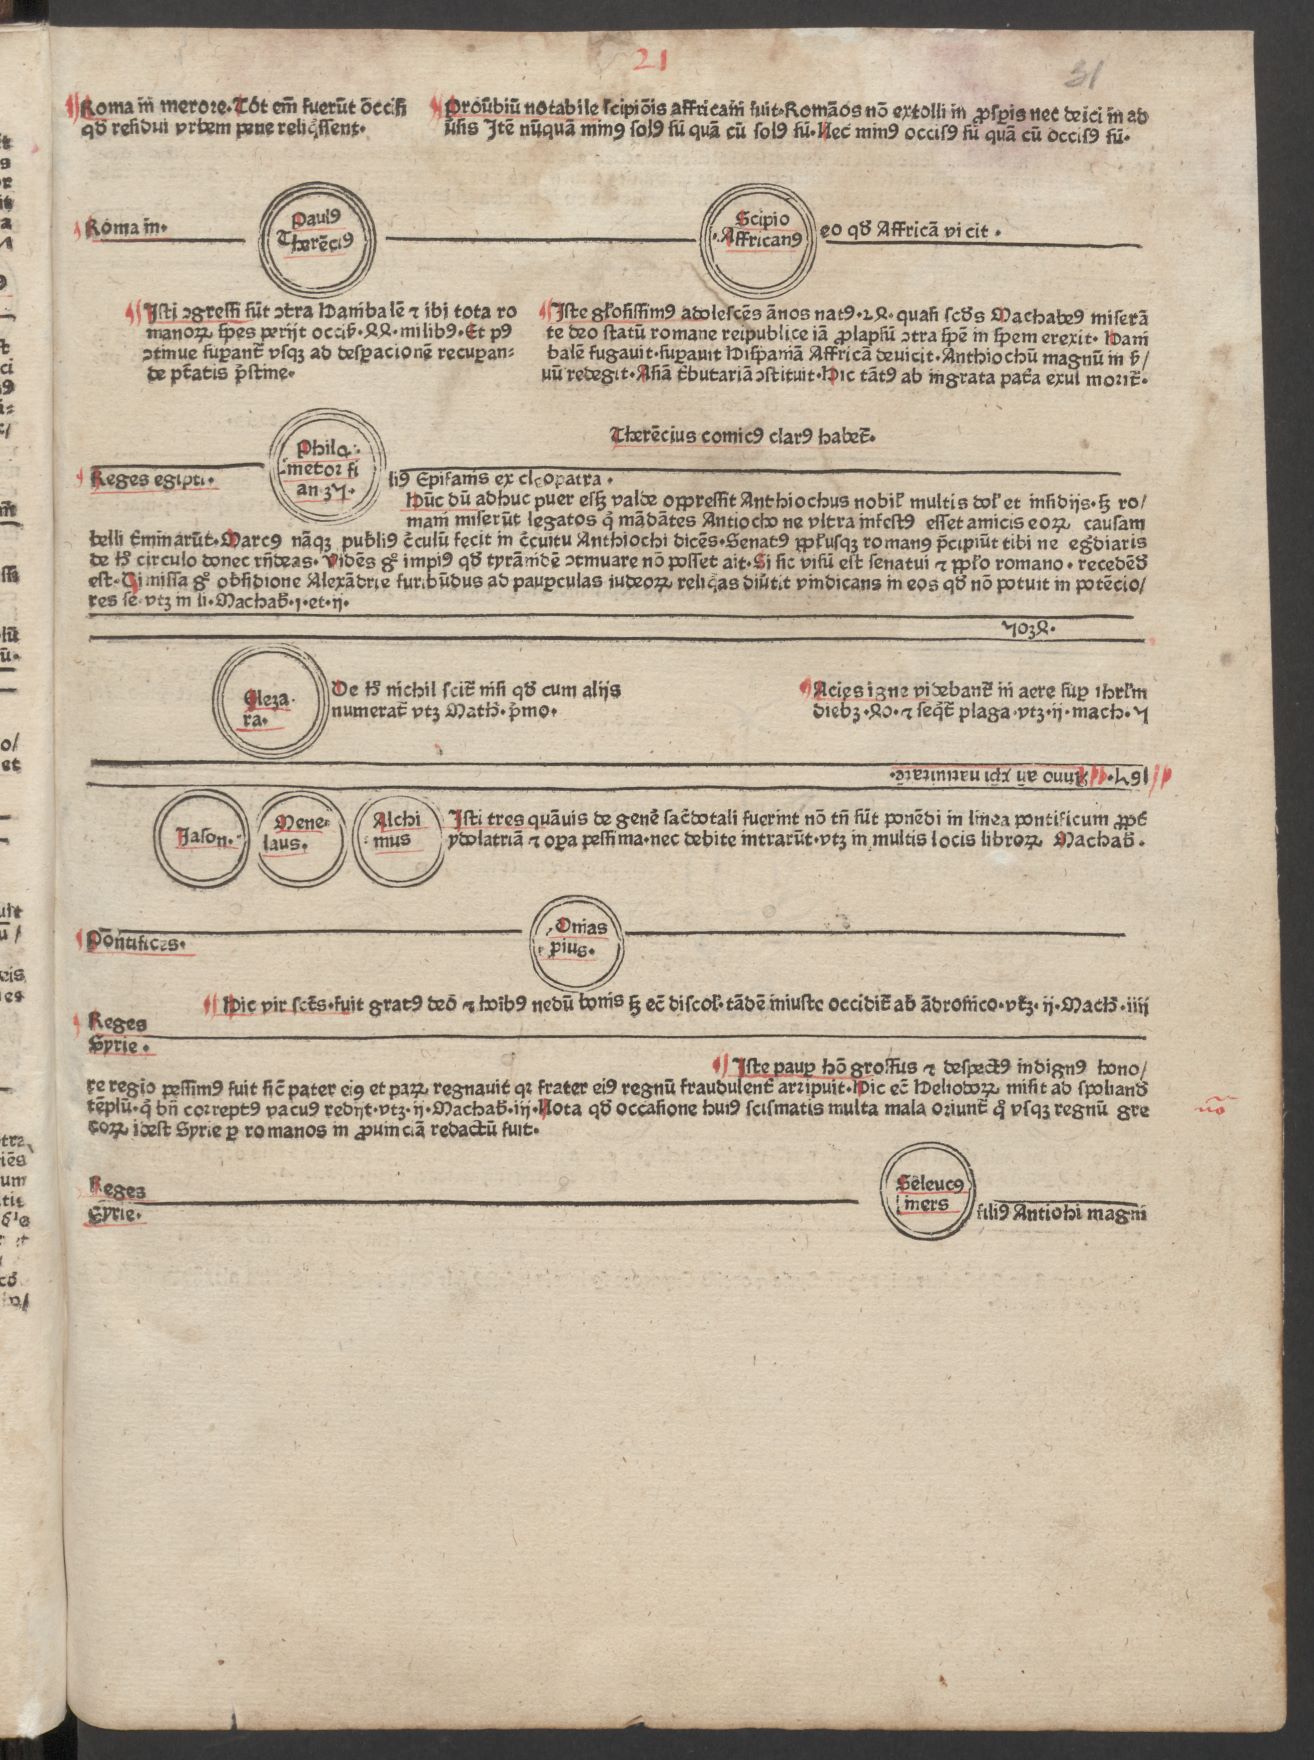 21
31
Roma in̄ merore. Tōt em̄ fuerūt ōccisi
qd̄ residui vrbem pene reliq̄ssent.
Prou̅biū notabile scipiōis affricani fuit. Romāos nō extolli in ꝓsꝑis nec deici in ad
u̅sis Itē nūquā minꝰ solꝰ sū quā cū solꝰ sū. Nec minꝰ occisꝰ sū quā cū occisꝰ sū.
Roma in̄.
Paulꝰ
Therēciꝰ
Scipio
Affricanꝰ
eo qd̄ Affricā vicit.
Isti ↄgressi sūt ↄtra Hanibalē ⁊ ibi tota ro
manoꝝ spes perijt occis̄. ꝶꝶ. milibꝰ. Et pꝰ
ↄtinue suꝑant̄ vsqꝫ ad desperacionē recuꝑan=
de pt̄atis p̄stine.
Iste gl̄osissimꝰ adolescēs ānos natꝰ. 2ꝶ. quasi scd̄s Machabeꝰ miserā
te deo statū romane reipublice iā ꝓlapsū ↄtra spē in spem erexit. Hani
balē fugauit. suꝑauit Hispaniā Affricā deuicit. Anthiochū magnū in s̄/
uū redegit. Asiā t̄butariā ↄstituit. Hic tātꝰ ab ingrata pat̄a exul morit̄.
Therēcius comicꝰ clarꝰ habet̄.
Reges egipti.
Philo
metor fi
an 3ꝶ.
liꝰ Epifanis ex cleopatra.
Hūc dū adhuc puer esꝫ valde oppressit Anthiochus nobil̄ multis dol̄ et insidijs. sꝫ ro/
mani miserūt legatos q̄ mādātes Antiocho ne vltra infestꝰ esset amicis eoꝝ causam
belli t̄minarūt. Marcꝰ nāqꝫ publiꝰ c̄culū fecit in c̄cuitu Anthiochi dicēs. Senatꝰ pp̄lusqꝫ romanꝰ p̄cipiūt tibi ne egd̄iaris
de h̄ circulo donec rn̄deas. Vidēs g̊ impiꝰ qd̄ tyrānidē ↄtinuare nō posset ait. Si sic visū est senatui ⁊ pp̄lo romano. recedēd̄
est. Dimissa g̊ obsidione Alexādrie furibūdus ad pauꝑculas iudeoꝝ reliq̄as diūtit vindicans in eos qd̄ nō potuit in potēcio/
res se. vtꝫ in li. Machab̄. j. et. ij.
Eleza
ra.
De h̄ nichil scit̄ nisi qd̄ cum alijs
numerat̄ vtꝫ Math̄. p̄mo.
Acies igne videbant̄ in aere suꝑ ihrl̄m
diebꝫ. ꝶ0. ⁊ seq̄t̄ plaga. vtꝫ. ij. mach. ⁊
Anno an̄ xp̄i natiuitatē.
Iason.
Mene=
laus.
Alchi
mus
Isti tres quāuis de gene̅ sac̄dotali fuerint nō tn̄ sūt ponēdi in linea pontificum ꝓpt̄
ydolatriā ⁊ oꝑa pessima. nec debite intrarūt. vtꝫ in multis locis libroꝝ Machab̄.
Pōntifices.
Onias
pius.
Hic vir sct̄s. fuit gratꝰ deō ⁊ hoībꝰ nedū bonis sꝫ ec̄ discol̄. tādē iniuste occidit̄ ab ādronico. vt̄ꝫ. ij. Mach̄. iiij
Reges
Syrie.
Iste pauꝑ hō grossus ⁊ despectꝰ indignꝰ hono/
re regio pessimꝰ fuit sic̄ pater eiꝰ et paꝝ regnauit qꝛ frater eiꝰ regnū fraudulent̄ arripuit. Hic ec̄ Heliodoꝝ misit ad spoliand̄
tēplū. q̄ bn̄ correptꝰ vacuꝰ redijt. vtꝫ. ij. Machab̄. iij. Nota qd̄ occasione huiꝰ scismatis multa mala oriunt̄ q̊ vsqꝫ regnū gre
coꝝ idest Syrie ꝑ romanos in ꝓuinciā redactū fuit.
nō
Reges
Syrie.
Sēleucꝰ
iners
filiꝰ Antiohi magni